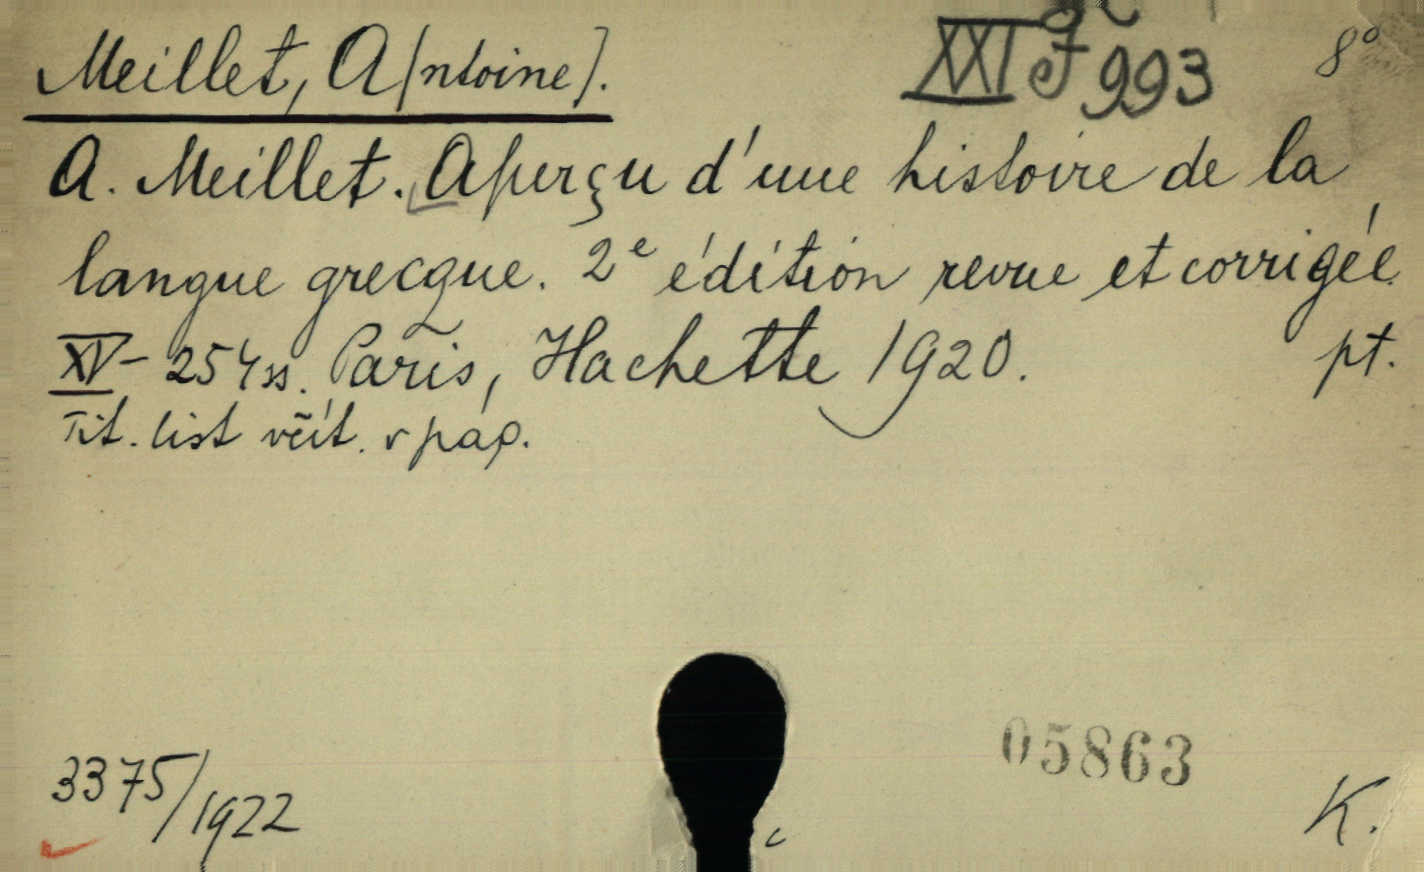 Meillet, A[ntoine].
XXI J 993
8°
A. Meillet. Aperçu d'une histoire de la
langue grecque. 2e édition revue et corrigée.
XV - 254 ss. Paris, Hachette 1920.
pt.
Tit. list včít. v pag.
05863
3375/1922
K.